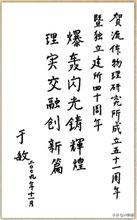 贺流体物理研究所成立五十一周年
暨独立建所四十周年
爆轰闪光铸辉煌
理实交融创新篇
于敏
二〇〇九年十一月